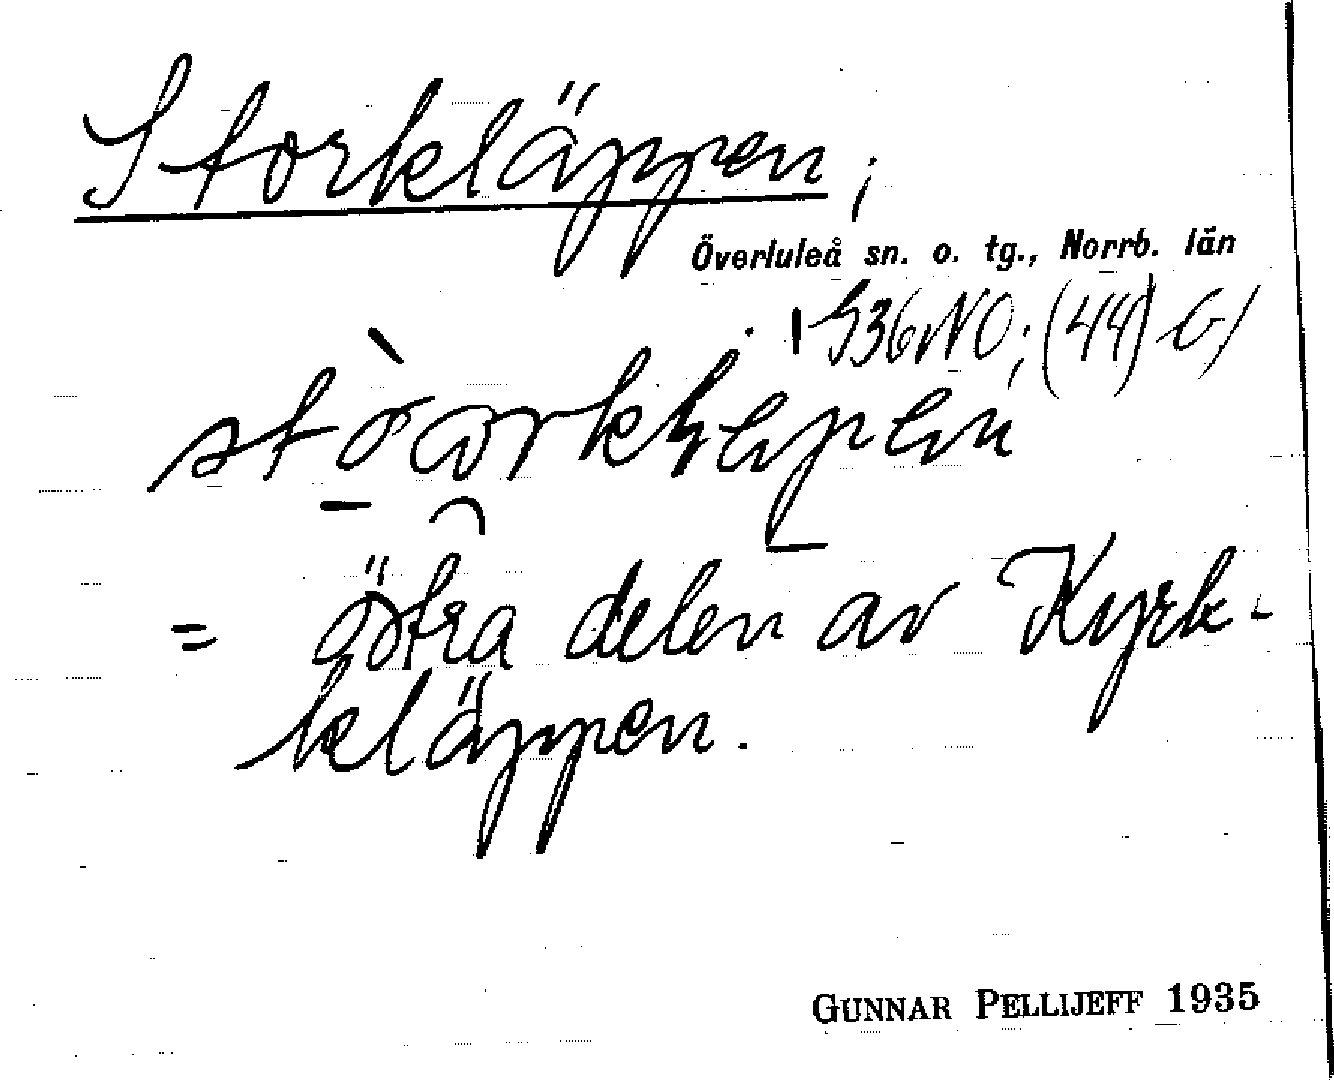 Storkläppen;
Överluleå sn. o. tg., Norrb. län
S36NO; (44) G)
= östra delen av Kyrk-
kläppen.
GUNNAR PELLIJEFF 1935